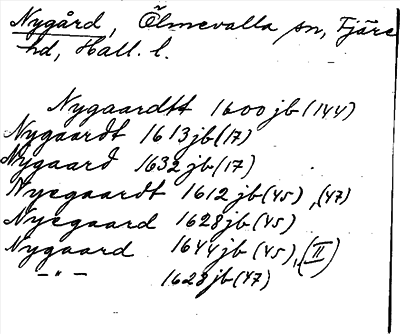 Nygård, Ölmevalla sn, Fjäre
hd, Hall. l.
Nygaardtt 1600 jb (144)
Nygaardt 1613 jb (17)
Nygaard 1632 jb (17)
Nyegaardt 1612 jb (45), (47)
Nyegaard 1628 jb (45)
Nygaard 1644 jb (45), (II)
–"– 1628 jb (47)